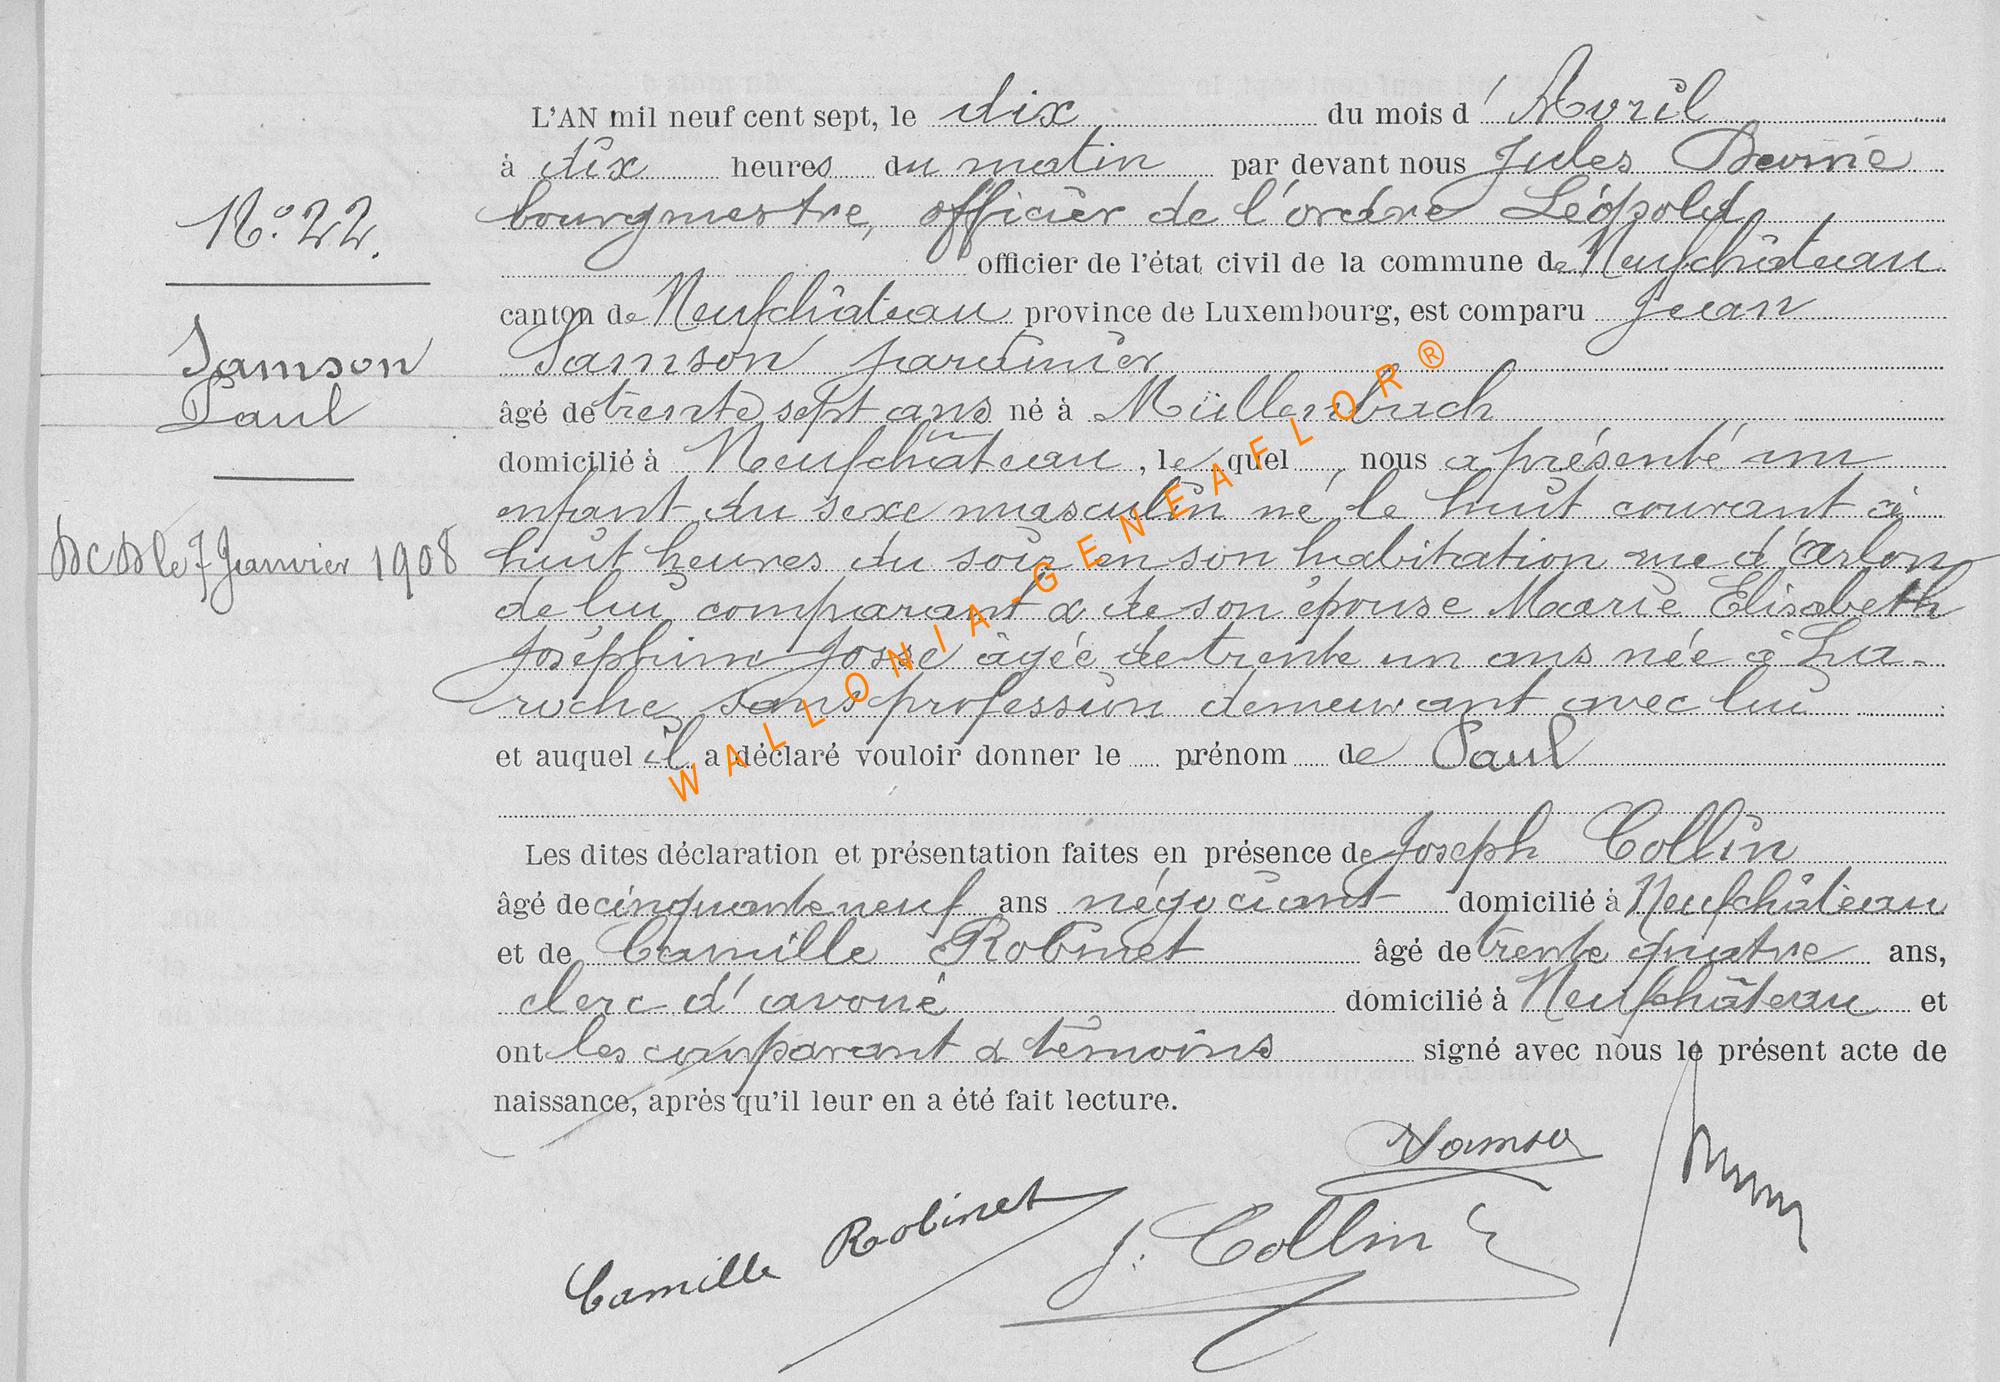 L'AN mil neuf cent sept, le dix du mois d' Avril
à dix heures du matin par devant nous Jules
bourgmestre, officier de l'ordre Léopold,
officier de l'état civil de la commune de Neufchâteau
canton de Neufchâteau province de Luxembourg, est comparu Jean
Samson jardinier
âgé de trente sept ans né à Müllenbach
domicilié à Neufchâteau, lequel, nous a présenté un
enfant du sexe masculin né le huit courant à
huit heures du soir en son habitation rue d'Arlon
de lui comparant & de son épouse Marie Elisabeth
Joséphine Josse âgée de trente un ans née à La-
roche, sans profession demeurant avec lui
et auquel il a déclaré vouloir donner le prénom de Paul
Les dites déclaration et présentation faites en présence de Joseph Collin
âgé de cinquante neuf ans négociant domicilié à Neufchâteau
et de Camille Robinet âgé de trente quatre ans,
clerc d'avoué domicilié à Neufchâteau et
ont les comparant & témoins signé avec nous le présent acte de
naissance, après qu'il leur en a été fait lecture.
N° 22.
Samson
Paul
DCD le 7 Janvier 1908
Samson
Camille Robinet
J. Collin
WALLONIA-GENEAFLOR®